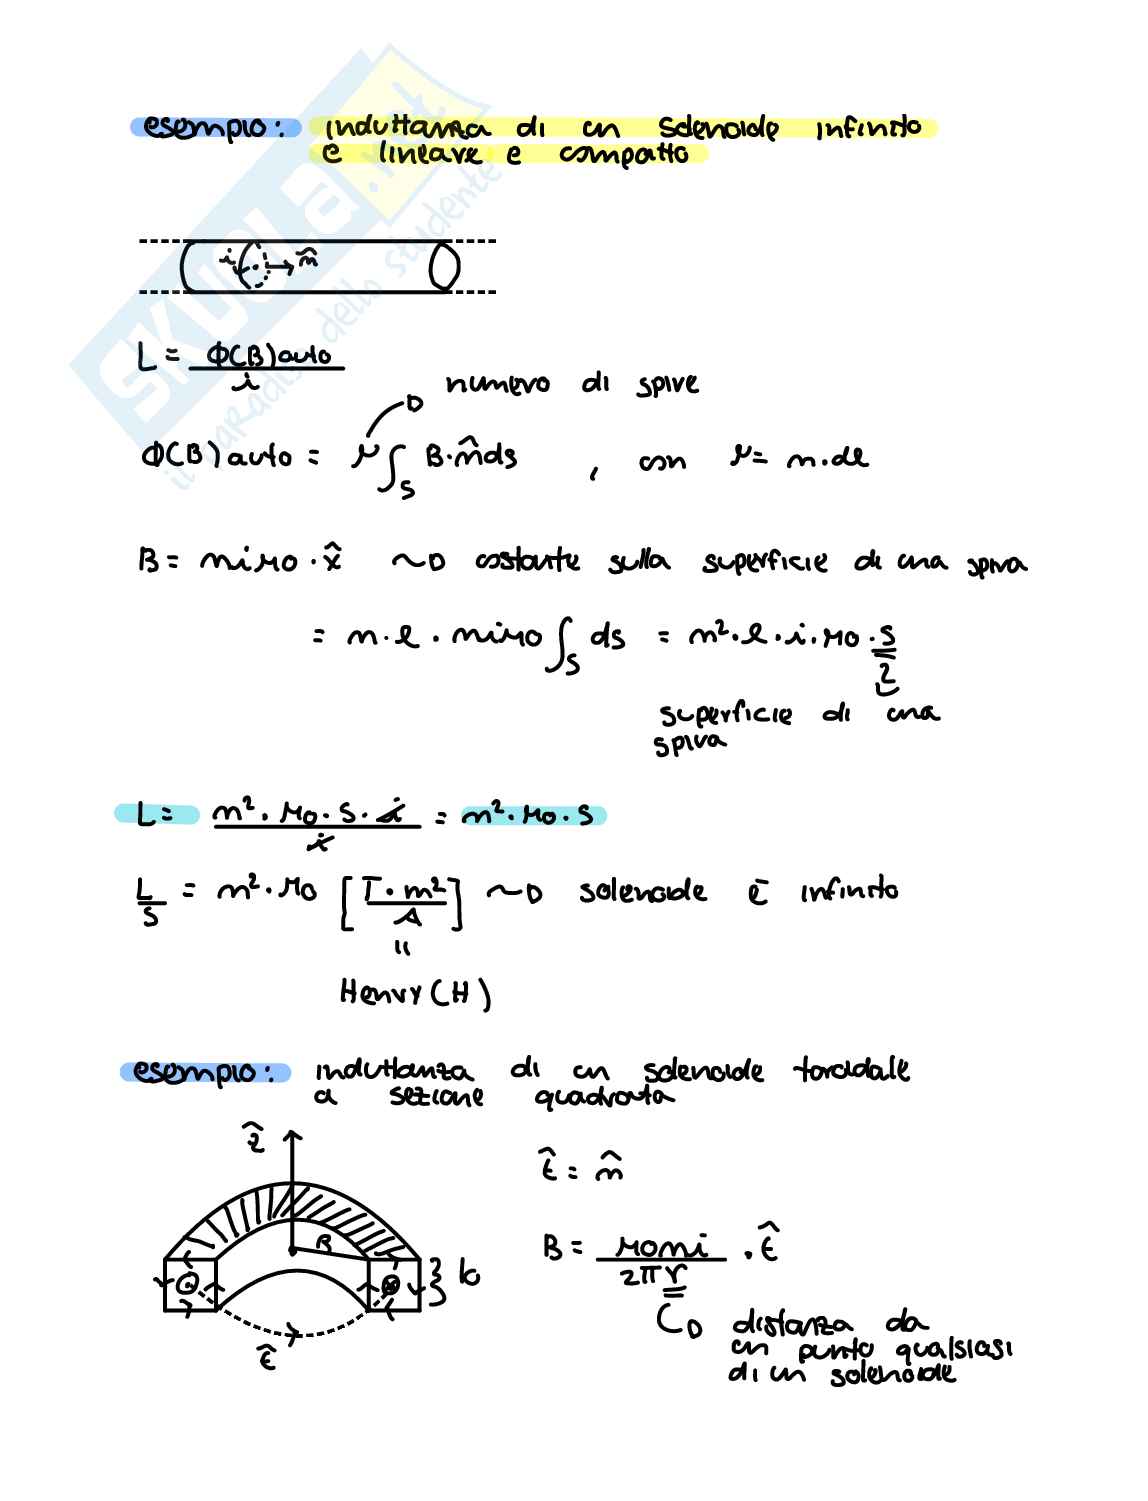 esempio: induttanza di un solenoide infinito
e lineare e compatto
SKUOLA.net
il paradiso dello studente
i n̂
L = Φ(B)auto / i
numero di spire
Φ(B)auto = N ∫_S B·n̂ ds , con N = n·dl
B = niμ0·x̂ ~> costante sulla superficie di una spira
= n·l·niμ0 ∫_S ds = n²·l·i·μ0·S
superficie di una
spira
L = n²·μ0·S·i / i = n²·μ0·S
L/S = n²·μ0 [T·m²/A] ~> solenoide è infinito
"
Henry (H)
esempio: induttanza di un solenoide toroidale
a sezione quadrata
ẑ
t̂ = n̂
R
B = μ0ni / 2πr · t̂
b
distanza da
un punto qualsiasi
di un solenoide
t̂